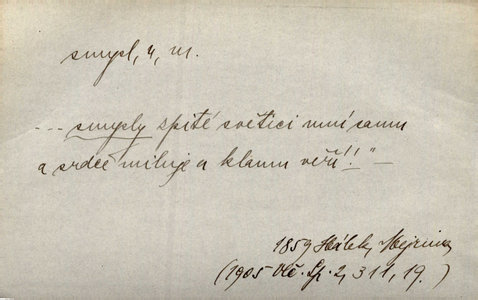 smysl, u, m.
... smysly spité světící mní samu
a srdce miluje a klamu věří!!"
1859 Hálek, Mejrima
(1905 Vlč. Sp. 2, 311, 19.)